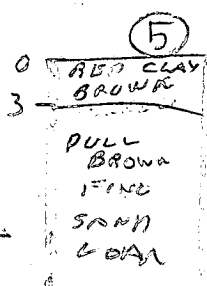 5
0 RED CLAY
BROWN
3
DULL
BROWN
FINE
SAND
LOAM